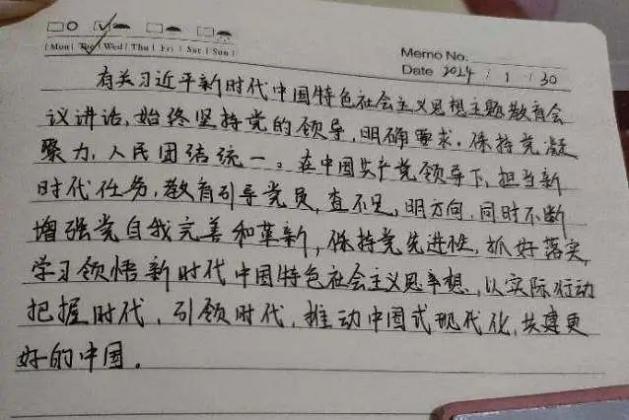 | Mon | Tue | Wed | Thu | Fri | Sat | Sun |
Memo No.
Date 2024 / 1 / 30
有关习近平新时代中国特色社会主义思想主题教育会
议讲话,始终坚持党的领导,明确要求。保持党凝
聚力,人民团结统一。在中国共产党领导下,担当新
时代任务,教育引导党员,查不足,明方向,同时不断
增强党自我完善和革新,保持党先进性,抓好落实,
学习领悟新时代中国特色社会主义思想,以实际行动
把握时代,引领时代,推动中国式现代化,共建更
好的中国。